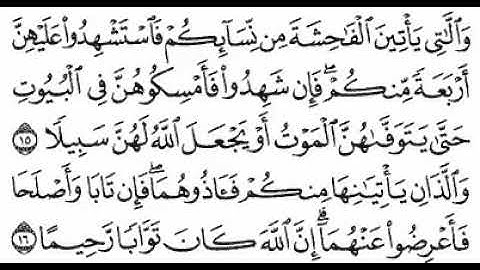 وَٱلَّٰتِى يَأْتِينَ ٱلْفَٰحِشَةَ مِن نِّسَآئِكُمْ فَٱسْتَشْهِدُوا۟ عَلَيْهِنَّ
أَرْبَعَةً مِّنكُمْ ۖ فَإِن شَهِدُوا۟ فَأَمْسِكُوهُنَّ فِى ٱلْبُيُوتِ
حَتَّىٰ يَتَوَفَّىٰهُنَّ ٱلْمَوْتُ أَوْ يَجْعَلَ ٱللَّهُ لَهُنَّ سَبِيلًا ١٥
وَٱلَّذَانِ يَأْتِيَٰنِهَا مِنكُمْ فَـَٔاذُوهُمَا ۖ فَإِن تَابَا وَأَصْلَحَا
فَأَعْرِضُوا۟ عَنْهُمَآ ۗ إِنَّ ٱللَّهَ كَانَ تَوَّابًا رَّحِيمًا ١٦